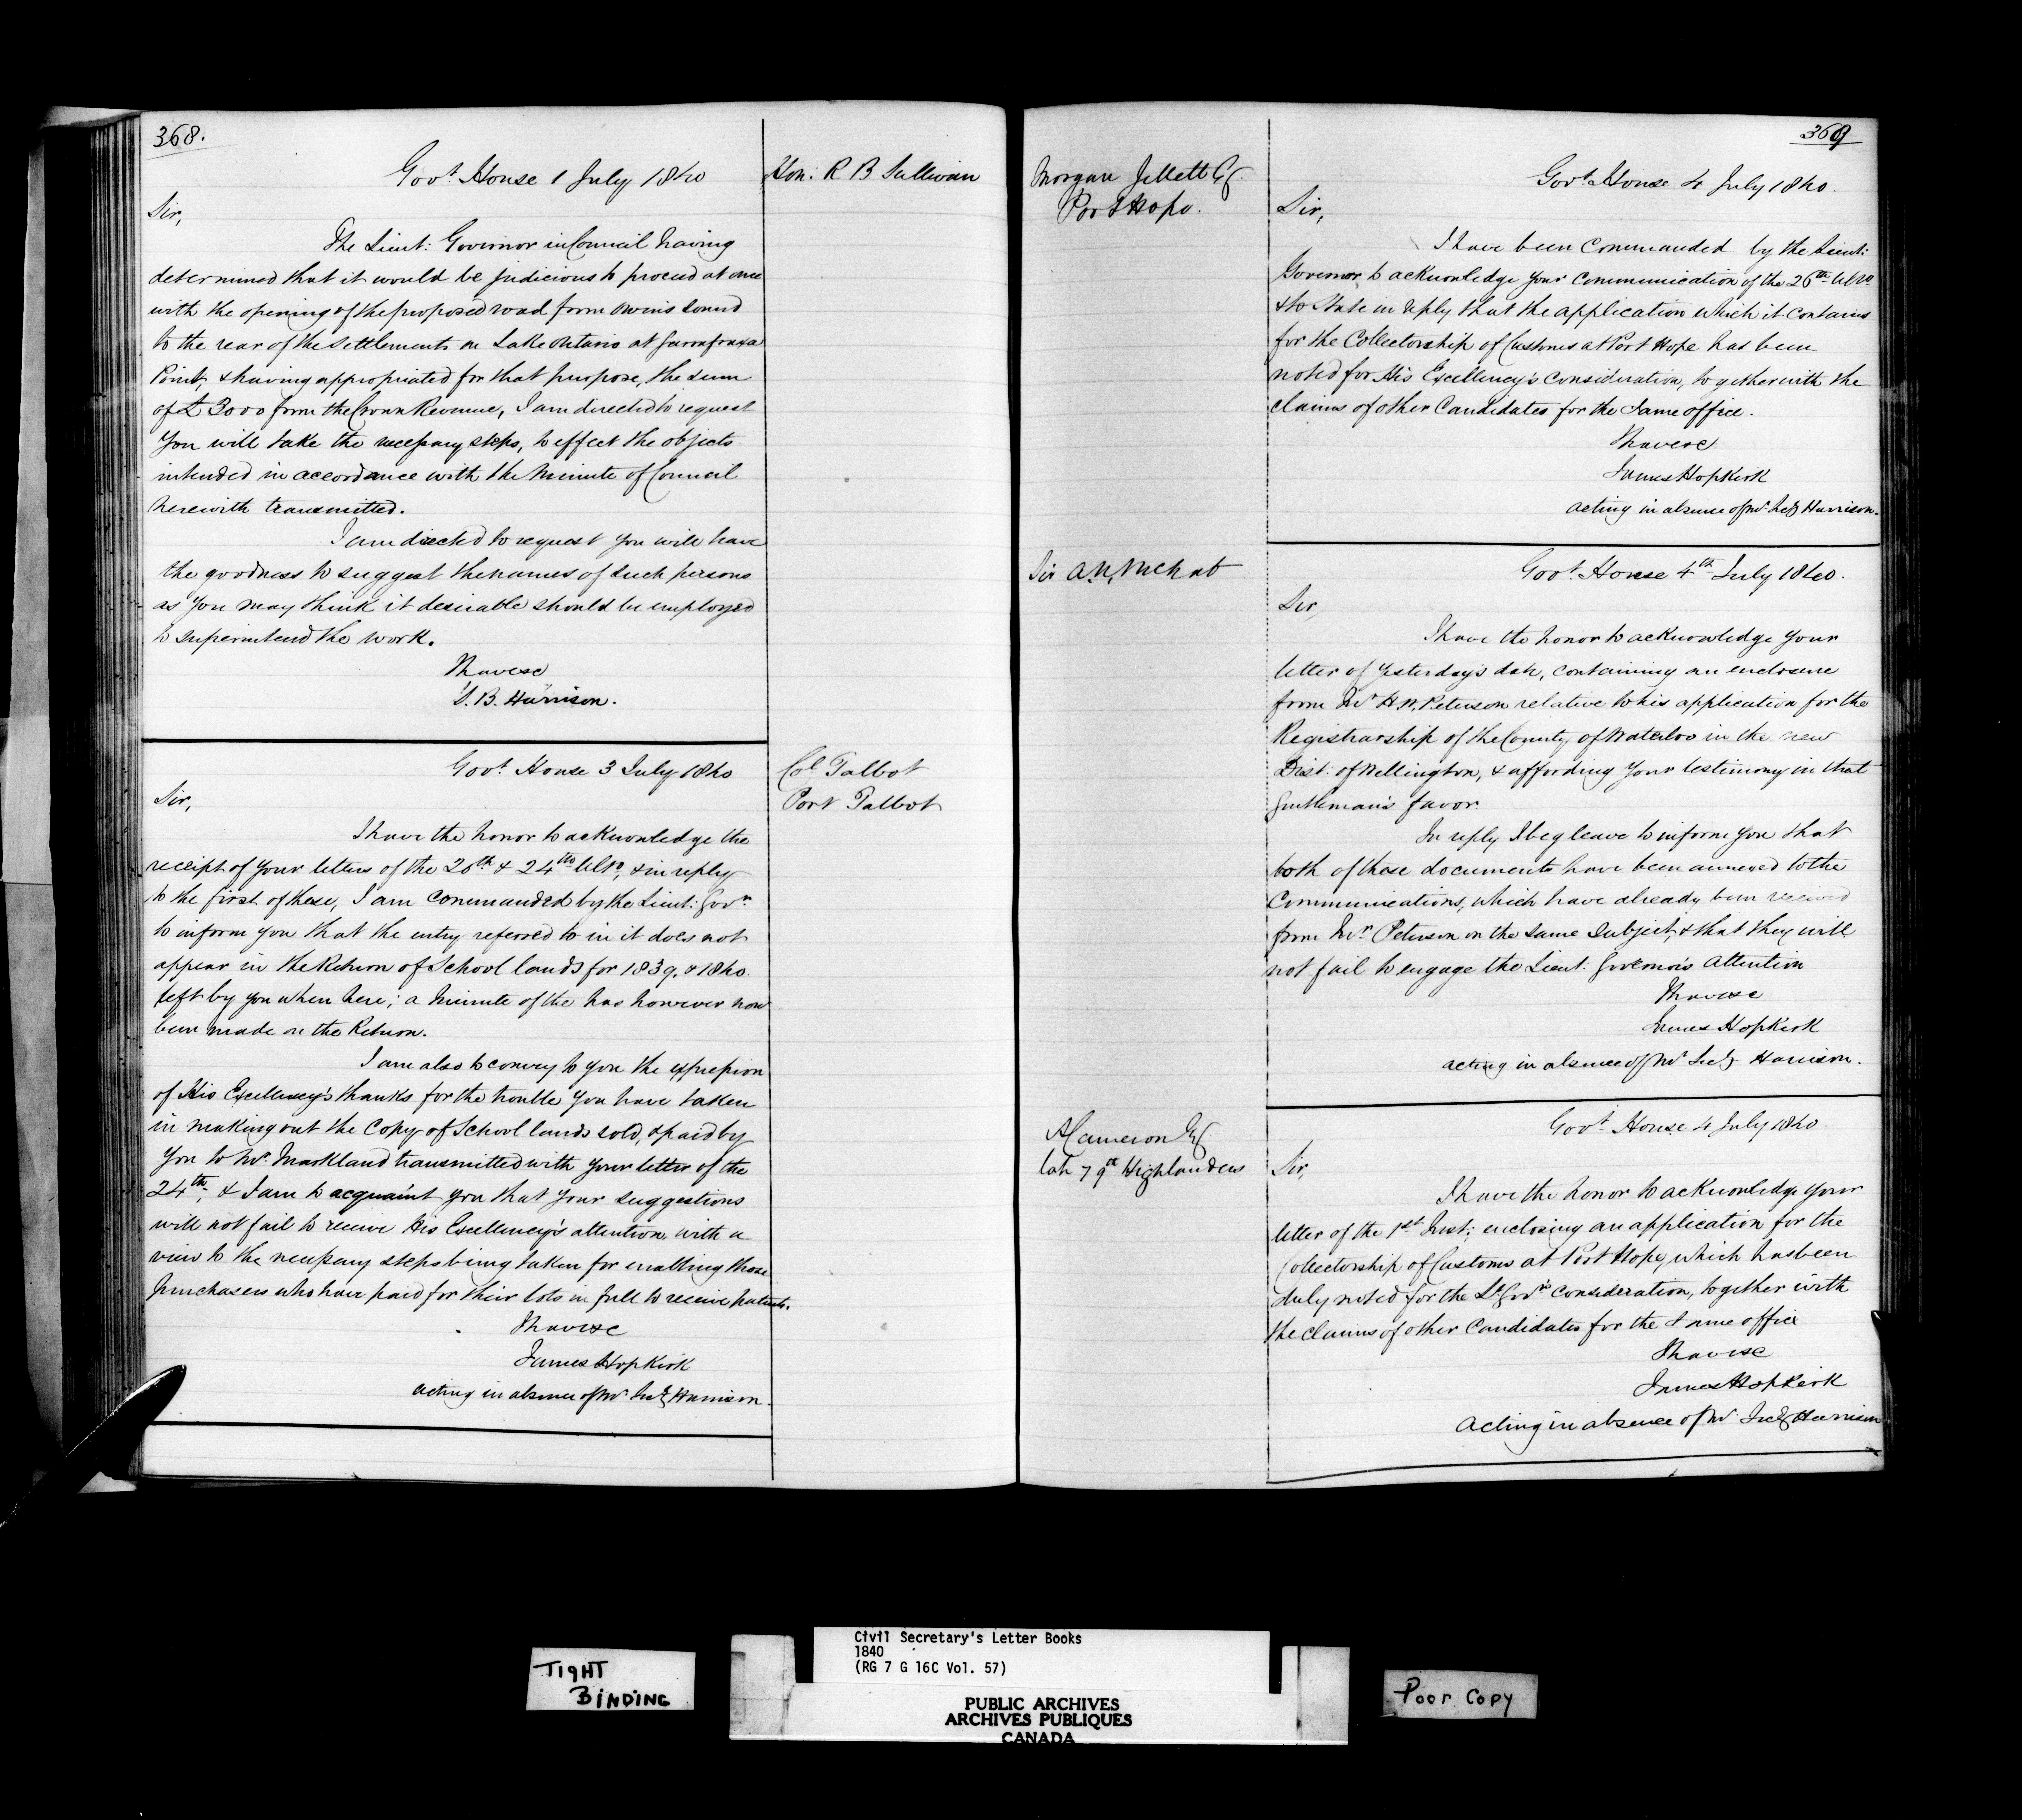 368.
Hon: R B Sullivan
Govt. House 1 July 1840
Sir,
The Lieut: Governor in Council having
determined that it would be judicious to proceed at once
with the opening of the proposed road from Owen's Sound
to the rear of the Settlements on Lake Ontario at Garrafraxa
Point, & having appropriated for that purpose, the sum
of £3000 from the Crown Revenue, I am directed to request
you will take the necessary steps, to effect the objects
intended in accordance with the Minute of Council
herewith transmitted.
I am directed to request you will have
the goodness to suggest the names of such persons
as you may think it desirable should be employed
to superintend the work.
I have &c
S. B. Harrison.
Col Talbot
Port Talbot
Govt. House 3 July 1840
Sir,
I have the honor to acknowledge the
receipt of your letters of the 20th & 24th Ulto, & in reply
to the first of these, I am commanded by the Lieut: Govr.
to inform you that the entry referred to in it does not
appear in the Return of School lands for 1839. & 1840.
left by you when here; a Minute of the has however now
been made on the Return.
I am also to convey to you the expression
of His Excellency's thanks for the trouble you have taken
in making out the Copy of School lands sold, & paid by
you to Mr. Markland transmitted with your letter of the
24th; & I am to acquaint you that your suggestions
will not fail to receive His Excellency's attention with a
view to the necessary steps being taken for enabling those
purchasers who have paid for their lots in full to receive patents.
I have &c
James Hopkirk
acting in absence of Mr. Secy Harrison.
369
Morgan Jellett Esq.
Port Hope.
Govt. House 4 July 1840.
Sir,
I have been commanded by the Lieut:
Governor, to acknowledge your communication of the 26th Ulto.
& to State in reply that the application which it contains
for the Collectorship of Customs at Port Hope has been
noted for His Excellency's consideration, together with the
claims of other Candidates for the Same office.
I have &c
James Hopkirk
acting in absence of Mr. Secy Harrison.
Sir A. N. McNab
Govt. House 4th July 1840.
Sir,
I have the honor to acknowledge your
letter of yesterday's date, containing an enclosure
from Mr H. W. Peterson relative to his application for the
Registrarship of the County of Waterloo in the new
Dist: of Wellington, & affording your testimony in that
gentleman's favor
In reply I beg leave to inform you that
both of these documents have been annexed to the
Communications, which have already been received
from Mr. Peterson on the same subject, & that they will
not fail to engage the Lieut: Governor's Attention
I have &c
James Hopkirk
acting in absence of Mr Secy Harrison.
A Cameron Esq
late 79th Highlanders
Govt. House 4 July 1840.
Sir,
I have the honor to acknowledge your
letter of the 1st. Inst: enclosing an application for the
Collectorship of Customs at Port Hope, which has been
duly noted for the Lt Govr's Consideration, together with
the claims of other Candidates for the same office
I have &c
James Hopkirk
Acting in absence of Mr. Secy Harrison
TIGHT
BINDING
Civil Secretary's Letter Books
1840
(RG 7 G 16C Vol. 57)
PUBLIC ARCHIVES
ARCHIVES PUBLIQUES
CANADA
Poor Copy